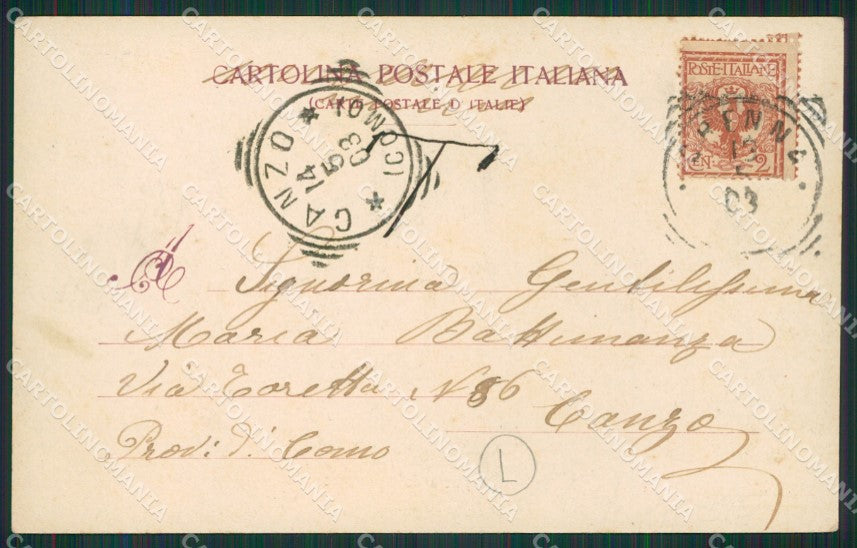 CARTOLINA POSTALE ITALIANA
(CARTE POSTALE D'ITALIE)
POSTE·ITALIANE
CEN. 2
CANZO
(COMO)
14
5
03
03
T
A
Signorina Gentilissima
Maria
Via Toretta N 86
Canzo
Provi: d' Como
L
CARTOLINOMANIA